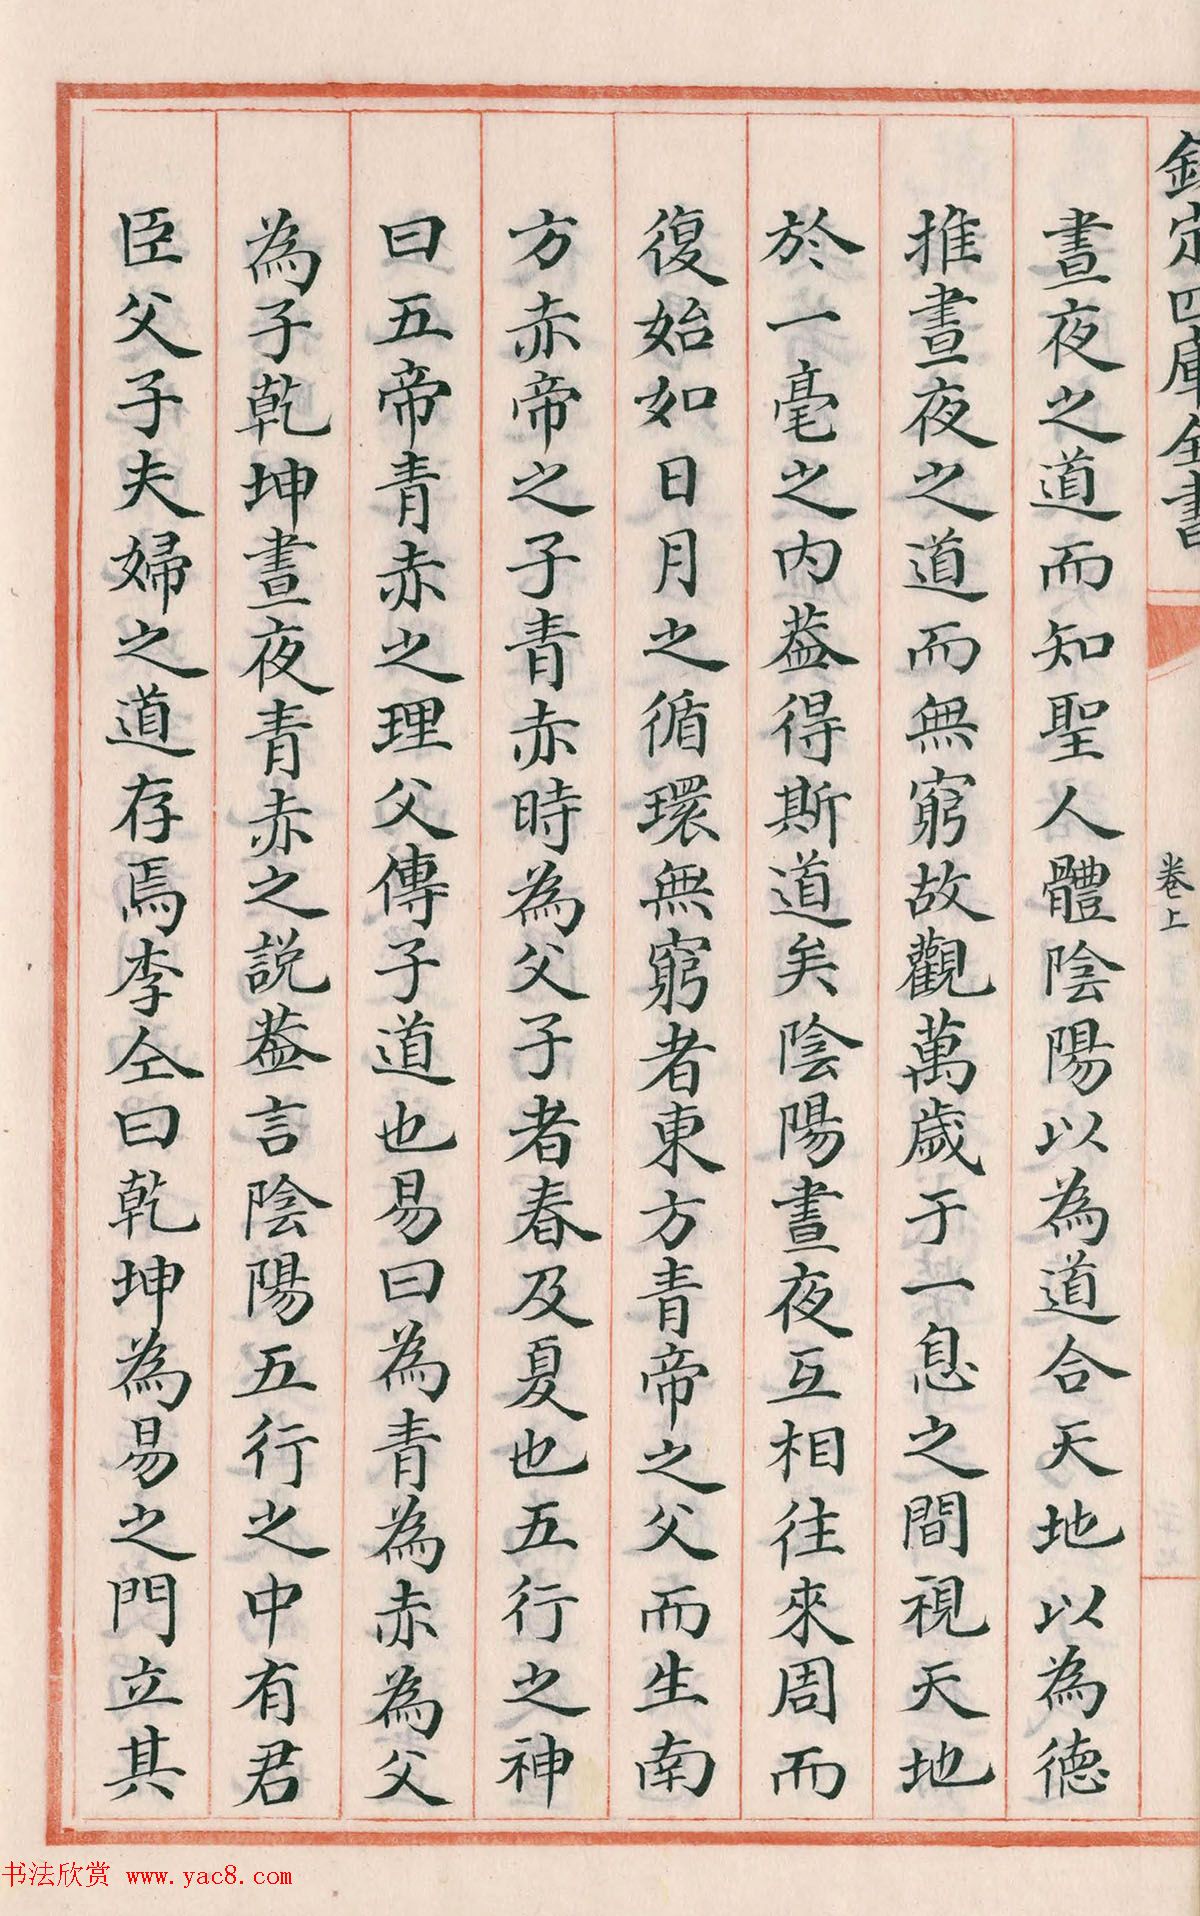 欽定四庫全書
卷上
晝夜之道而知聖人體陰陽以為道合天地以為德
推晝夜之道而無窮故觀萬歲于一息之間視天地
於一毫之内葢得斯道矣陰陽晝夜互相往來周而
復始如日月之循環無窮者東方青帝之父而生南
方赤帝之子青赤時為父子者春及夏也五行之神
曰五帝青赤之理父傳子道也易曰為青為赤為父
為子乾坤晝夜青赤之説葢言陰陽五行之中有君
臣父子夫婦之道存焉李仝曰乾坤為易之門立其
书法欣赏 www.yac8.com